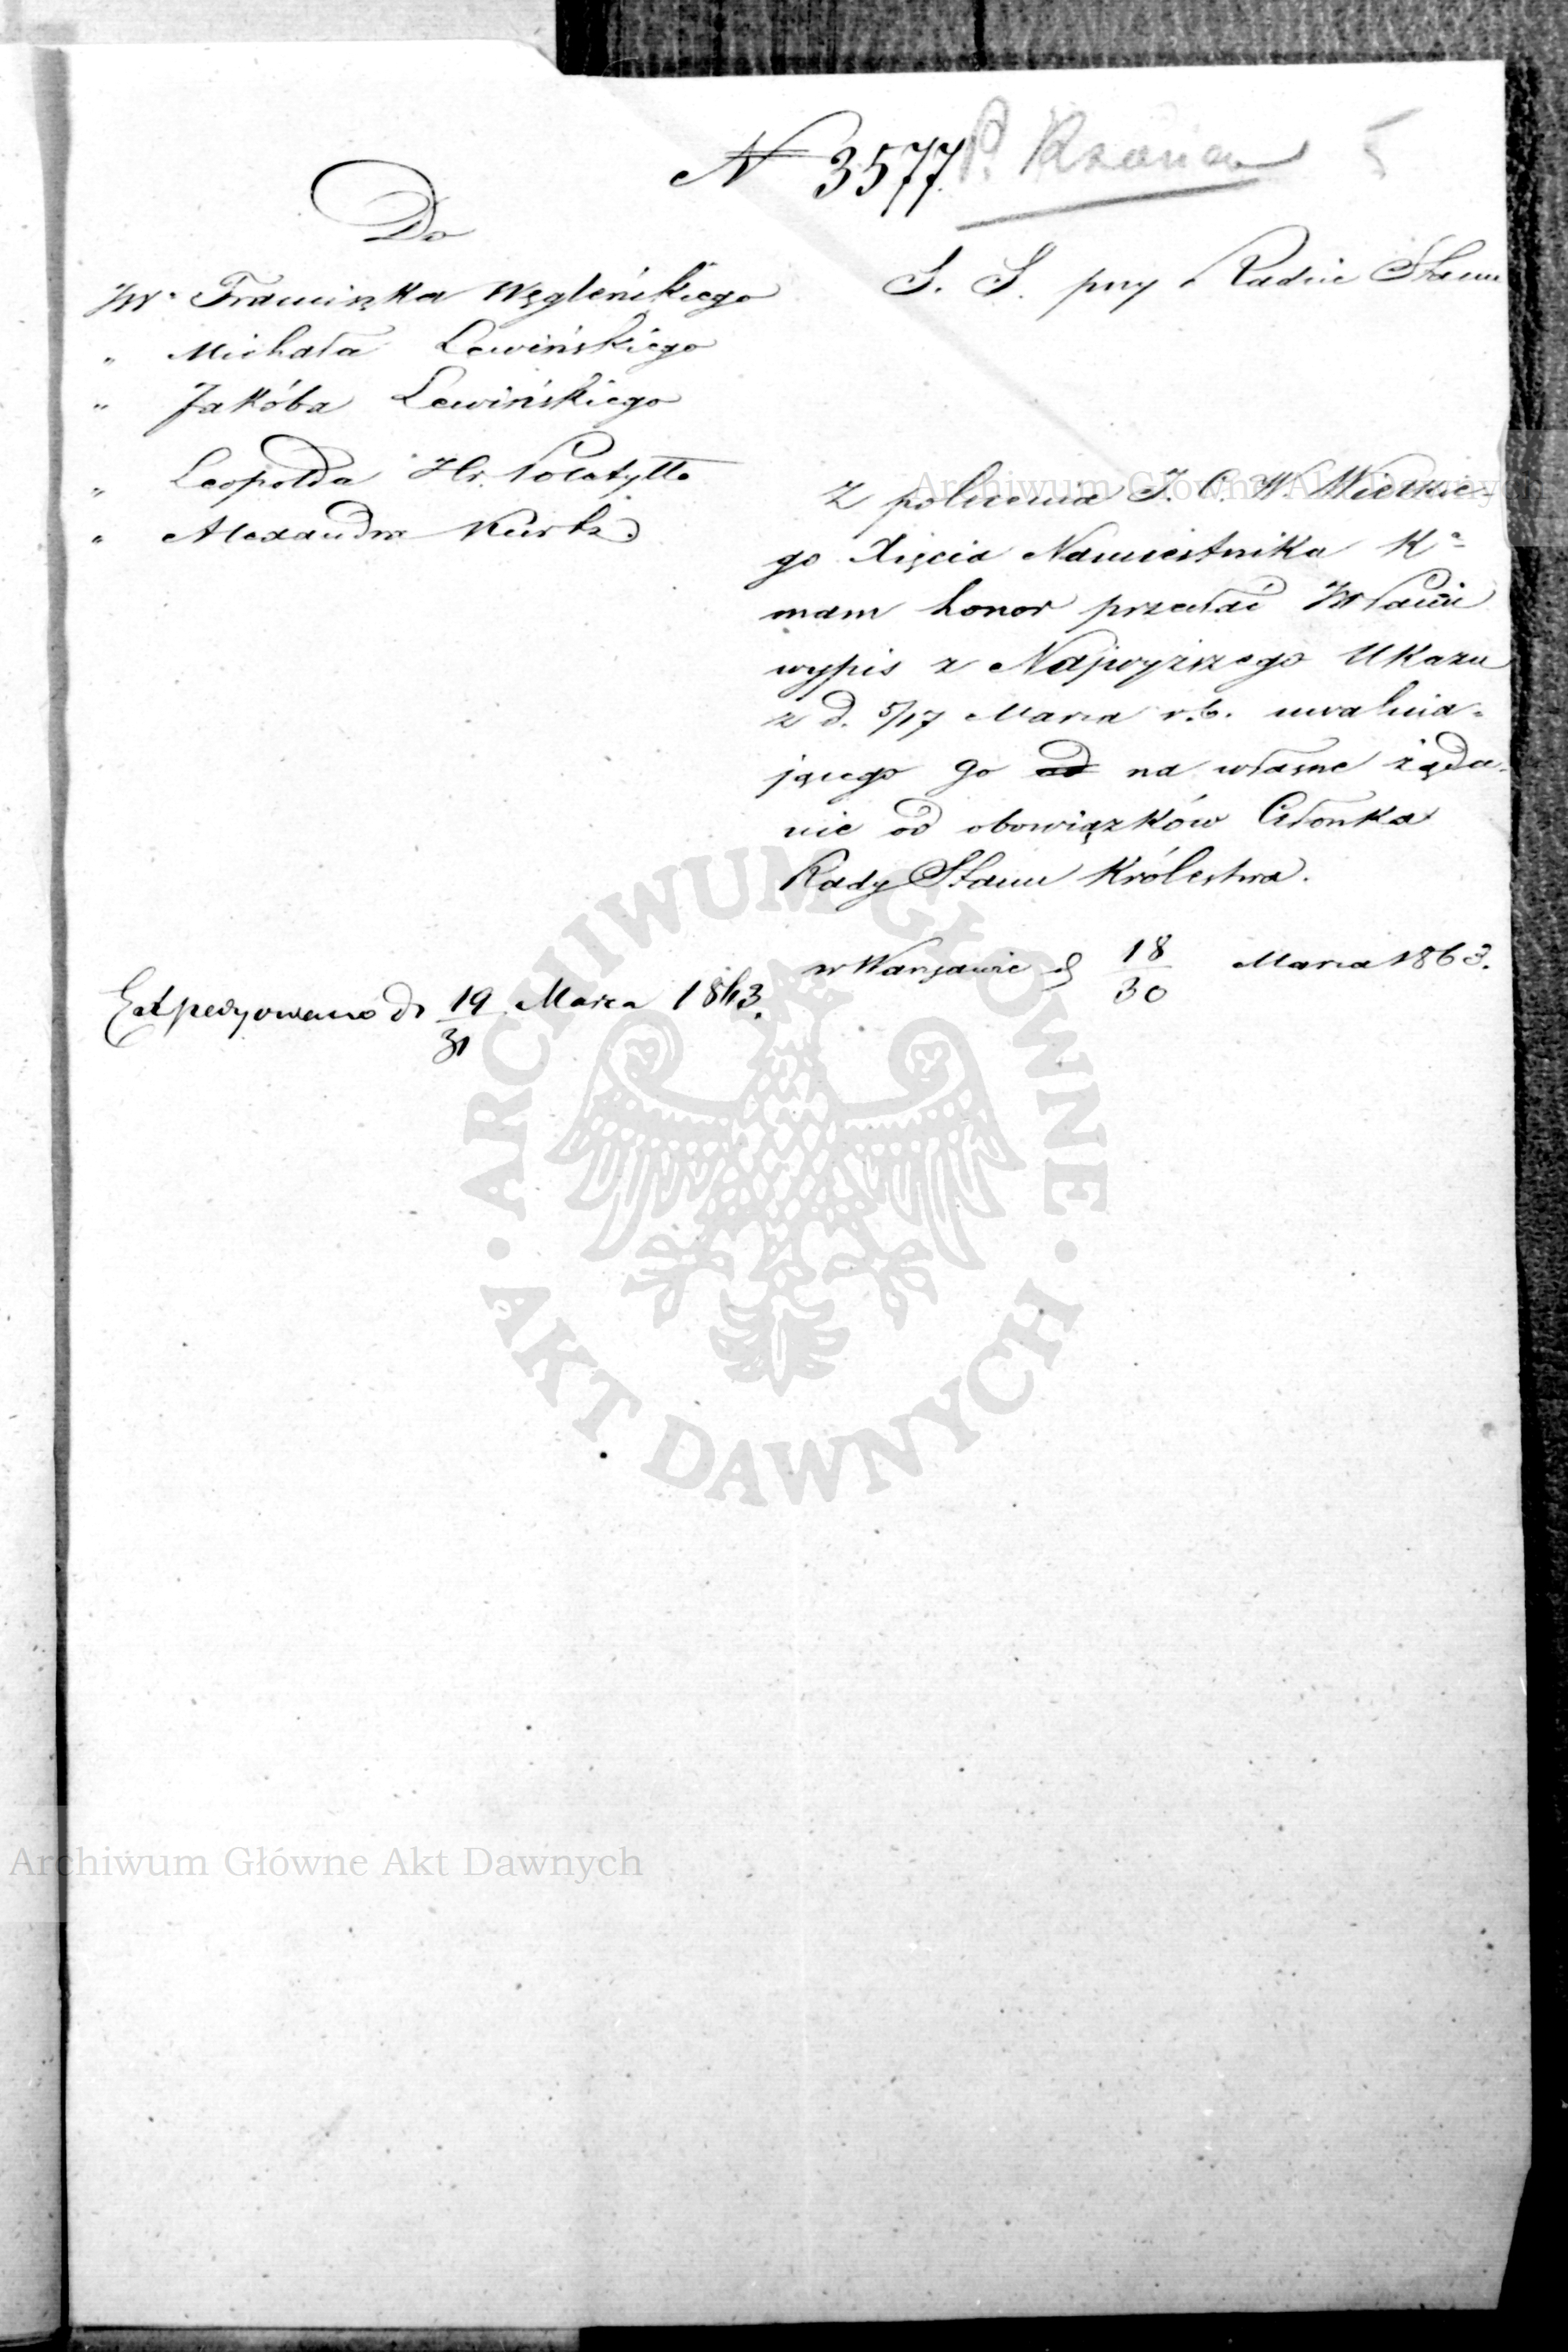 N 3577.
5
Do
JW. Franciszka Węgleńskiego
" Michała Lewińskiego
" Jakóba Lewińskiego
" Leopolda Hr. Poletyłło
" Alexandra Kurtz
S. S. przy Radzie Stanu
Z polecenia J. C. W. Wielkie-
go Xięcia Namiestnika K°
mam honor przesłać JWPanu
wypis z Najwyższego Ukazu
z d. 5/17 Marca r. b. uwalnia-
jącego go od na własne żąda-
nie od obowiązków Członka
Rady Stanu Królestwa.
w Warszawie d 18/30 Marca 1863.
Expedyowano d. 19/31 Marca 1863.
Archiwum Główne Akt Dawnych
ARCHIWUM GŁÓWNE · AKT DAWNYCH ·
Archiwum Główne Akt Dawnych